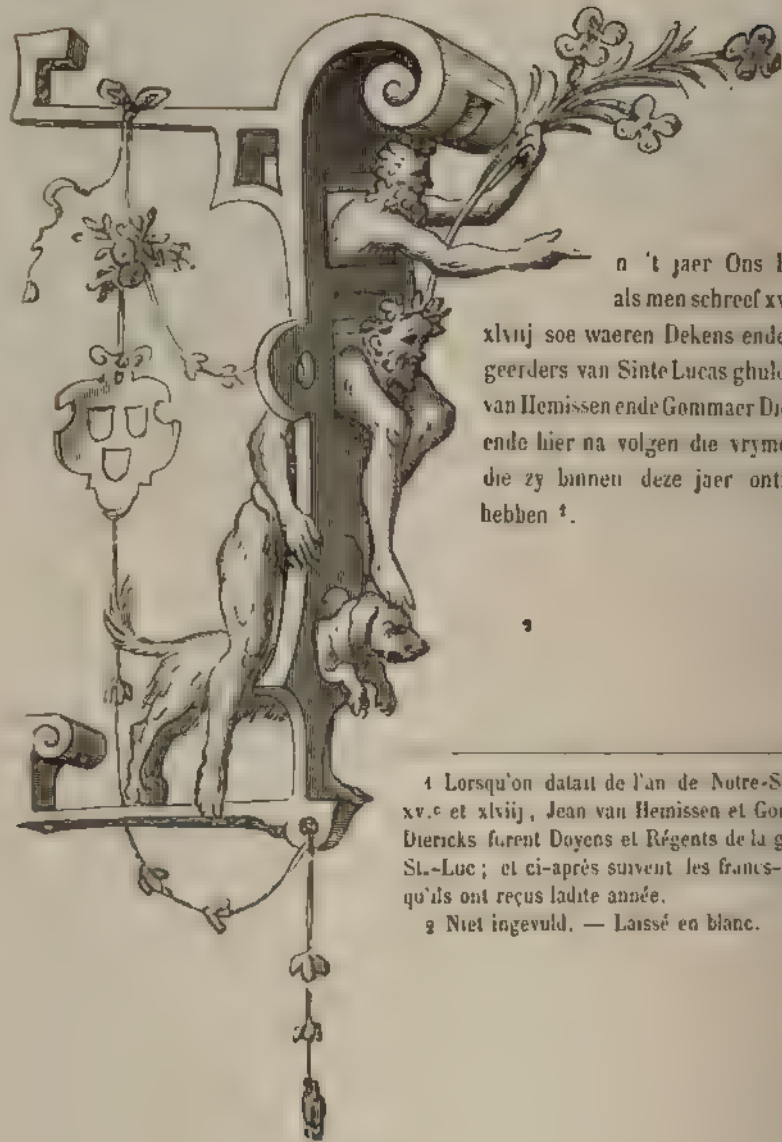 n 't jaer Ons
als men schreef xv
xlviij soe waeren Dekens ende
geerders van Sinte Lucas ghul
van Hemissen ende Gommaer Die
ende hier na volgen die vryme
die zy binnen deze jaer ont
hebben 1.
2
1 Lorsqu'on datait de l'an de Notre-S
xv.c et xlviij, Jean van Hemissen et Go
Diericks furent Doyens et Régents de la g
St.-Luc; et ci-après suivent les francs-
qu'ils ont reçus ladite année.
2 Niet ingevuld. — Laissé en blanc.